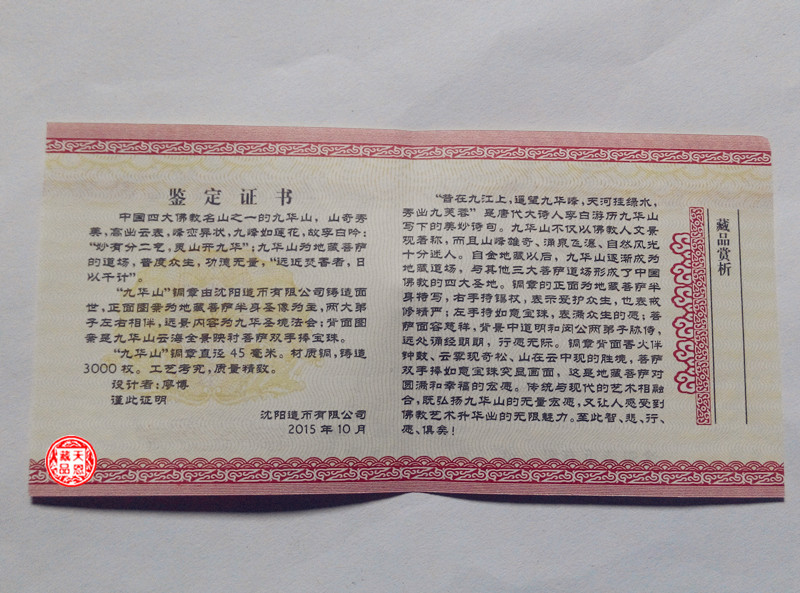 鉴定证书
中国四大佛教名山之一的九华山，山奇秀
美，高出云表，峰峦异状，九峰如莲花，故李白吟：
“妙有分二气，灵山开九华”；九华山为地藏菩萨
的道场，普度众生，功德无量，“远近焚香者，日
以千计”。
“九华山”铜章由沈阳造币有限公司铸造面
世，正面图案为地藏菩萨半身圣像为主，两大弟
子左右相伴，远景内容为九华圣境法会；背面图
案是九华山云海全景映衬菩萨双手捧宝珠。
“九华山”铜章直径 45 毫米。材质铜，铸造
3000 枚。工艺考究，质量精致。
设计者：廖博
谨此证明
沈阳造币有限公司
2015 年 10 月
“昔在九江上，遥望九华峰，天河挂绿水，
秀出九芙蓉”是唐代大诗人李白游历九华山
写下的美妙诗句。九华山不仅以佛教人文景
观著称，而且山峰雄奇、涌泉飞瀑、自然风光
十分迷人。自金地藏以后，九华山逐渐成为
地藏道场，与其他三大菩萨道场形成了中国
佛教的四大圣地。铜章的正面为地藏菩萨半
身特写，右手持锡杖，表示爱护众生，也表戒
修精严；左手持如意宝珠，表满众生的愿；菩
萨面容慈祥，背景中道明和闵公两弟子胁侍，
远处诵经朗朗，行愿无际。铜章背面香火伴
钟鼓、云雾现奇松、山在云中现的胜境，菩萨
双手捧如意宝珠突显画面，这是地藏菩萨对
圆满和幸福的宏愿。传统与现代的艺术相融
合，既弘扬九华山的无量宏愿，又让人感受到
佛教艺术升华出的无限魅力。至此智、悲、行、
愿、俱矣！
藏品赏析
天恩
藏品